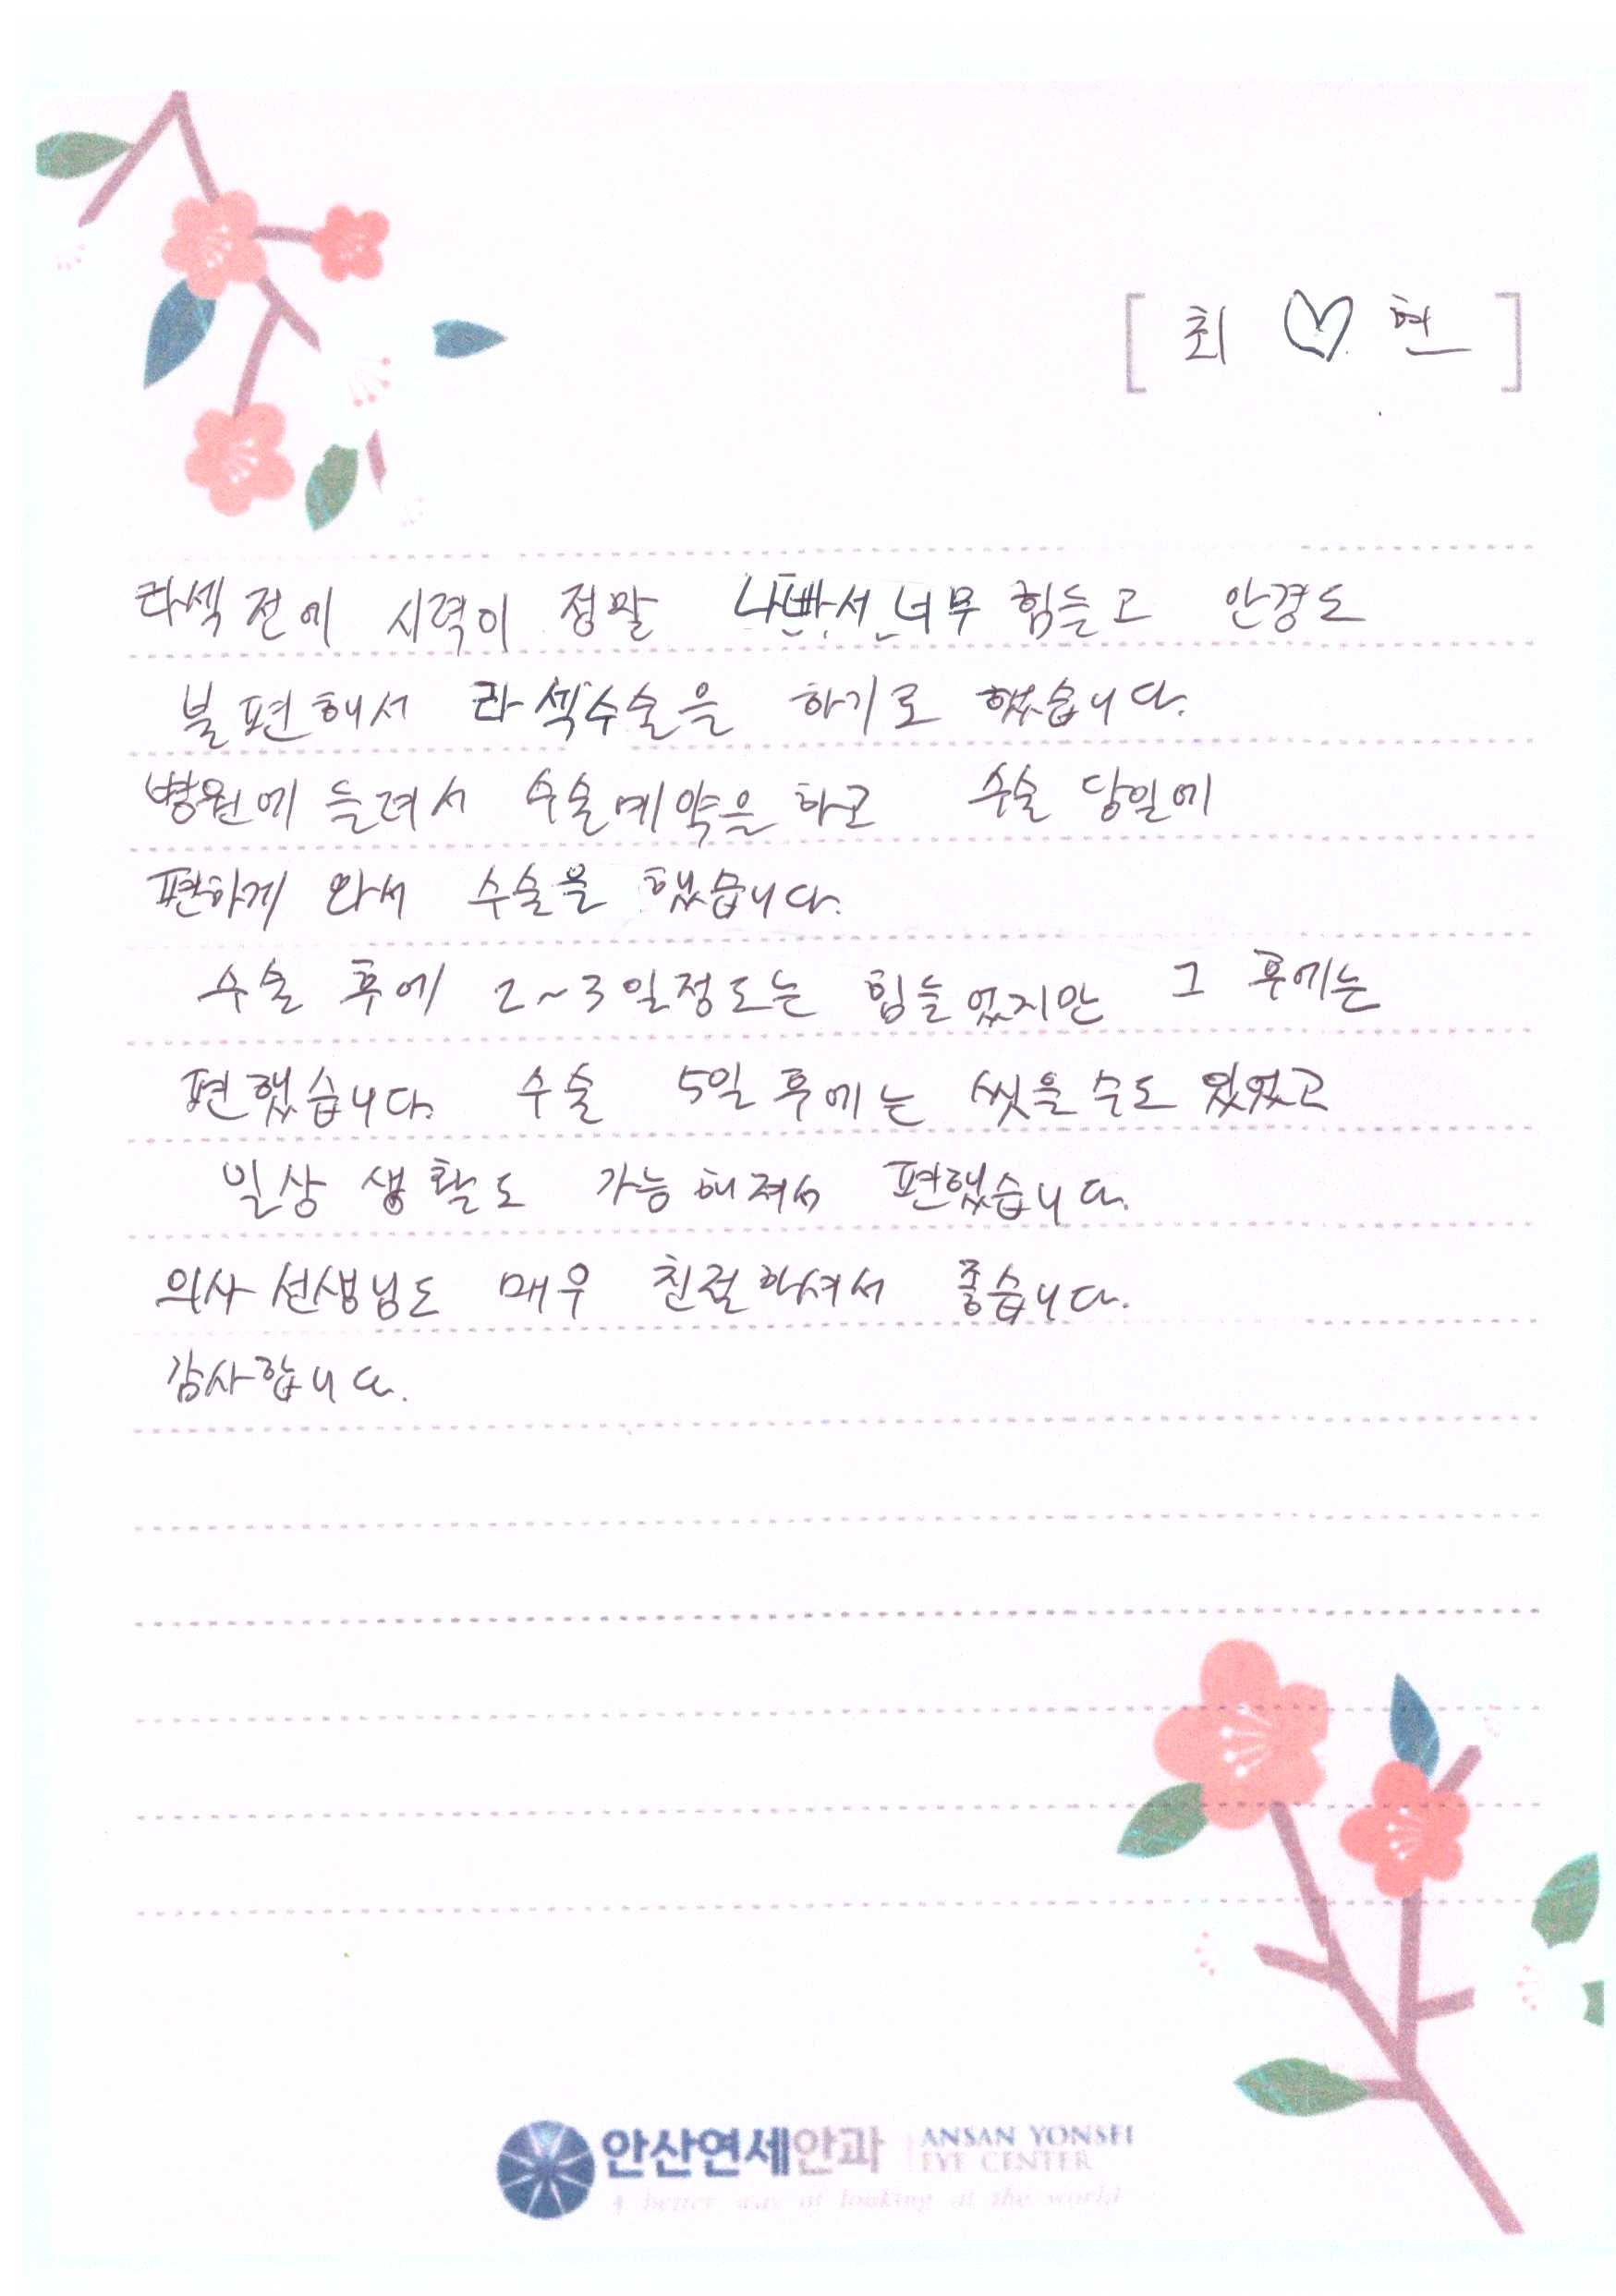 [ 최 ♡ 현 ]
라섹 전에 시력이 정말 나빠서 너무 힘들고 안경도
불편해서 라섹수술을 하기로 했습니다.
병원에 들려서 수술예약을 하고 수술 당일에
편하게 와서 수술을 했습니다.
수술 후에 2~3일정도는 힘들었지만 그 후에는
편했습니다. 수술 5일 후에는 씻을 수도 있었고
일상 생활도 가능해져서 편했습니다.
의사 선생님도 매우 친절하셔서 좋습니다.
감사합니다.
안산연세안과 ANSAN YONSEI
EYE CENTER
A better way of looking at the world